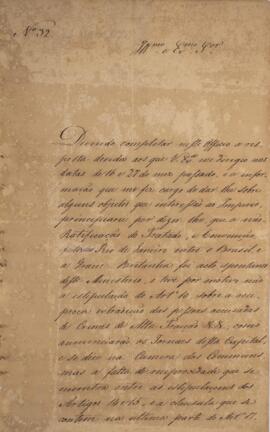 Nº 32
Illmo. Exmo. Snr.
Devendo completar neste Officio a res-
posta devida aos que V. Exa. me dirigio nas
datas de 16 e 27 do mez passado, e a infor-
mação que me fiz cargo de dar lhe sobre
alguns objectos que interessão ao Imperio,
principiarei por dizer lhe que a não
Ratificação do Tratado, e Convenção
feitos no Rio de Janeiro entre o Brasil e
a Gram Bretanha foi acto espontaneo
deste Ministerio, e teve por motivo não
a estipulação do Artº 10 sobre a reci-
proca extradição das pessoas accusadas
de Crimes de Alta Traição &&, como
annunciarão os Jornaes desta Capital,
e se disse na Camera dos Communs,
mas a falta de reciprocidade que se
encontra entre as estipulações dos
Artigos 14 e 15, e a clausula que se
contem na ultima parte do Artº 17.